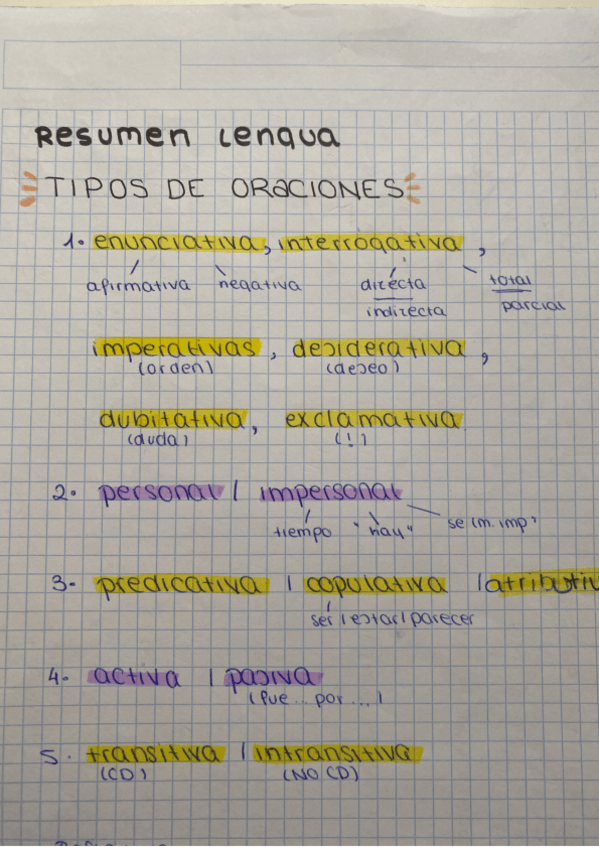 Resumen Lengua
TIPOS DE ORACIONES
1. enunciativa, interrogativa,
afirmativa negativa directa total
indirecta parcial
imperativas, desiderativa,
(orden) (deseo)
dubitativa, exclamativa
(duda) (!)
2. personal / impersonal
tiempo "hay" se (m. imp)
3. predicativa / copulativa / atributiv
ser / estar / parecer
4. activa / pasiva
(fue... por...)
5. transitiva / intransitiva
(CD) (NO CD)